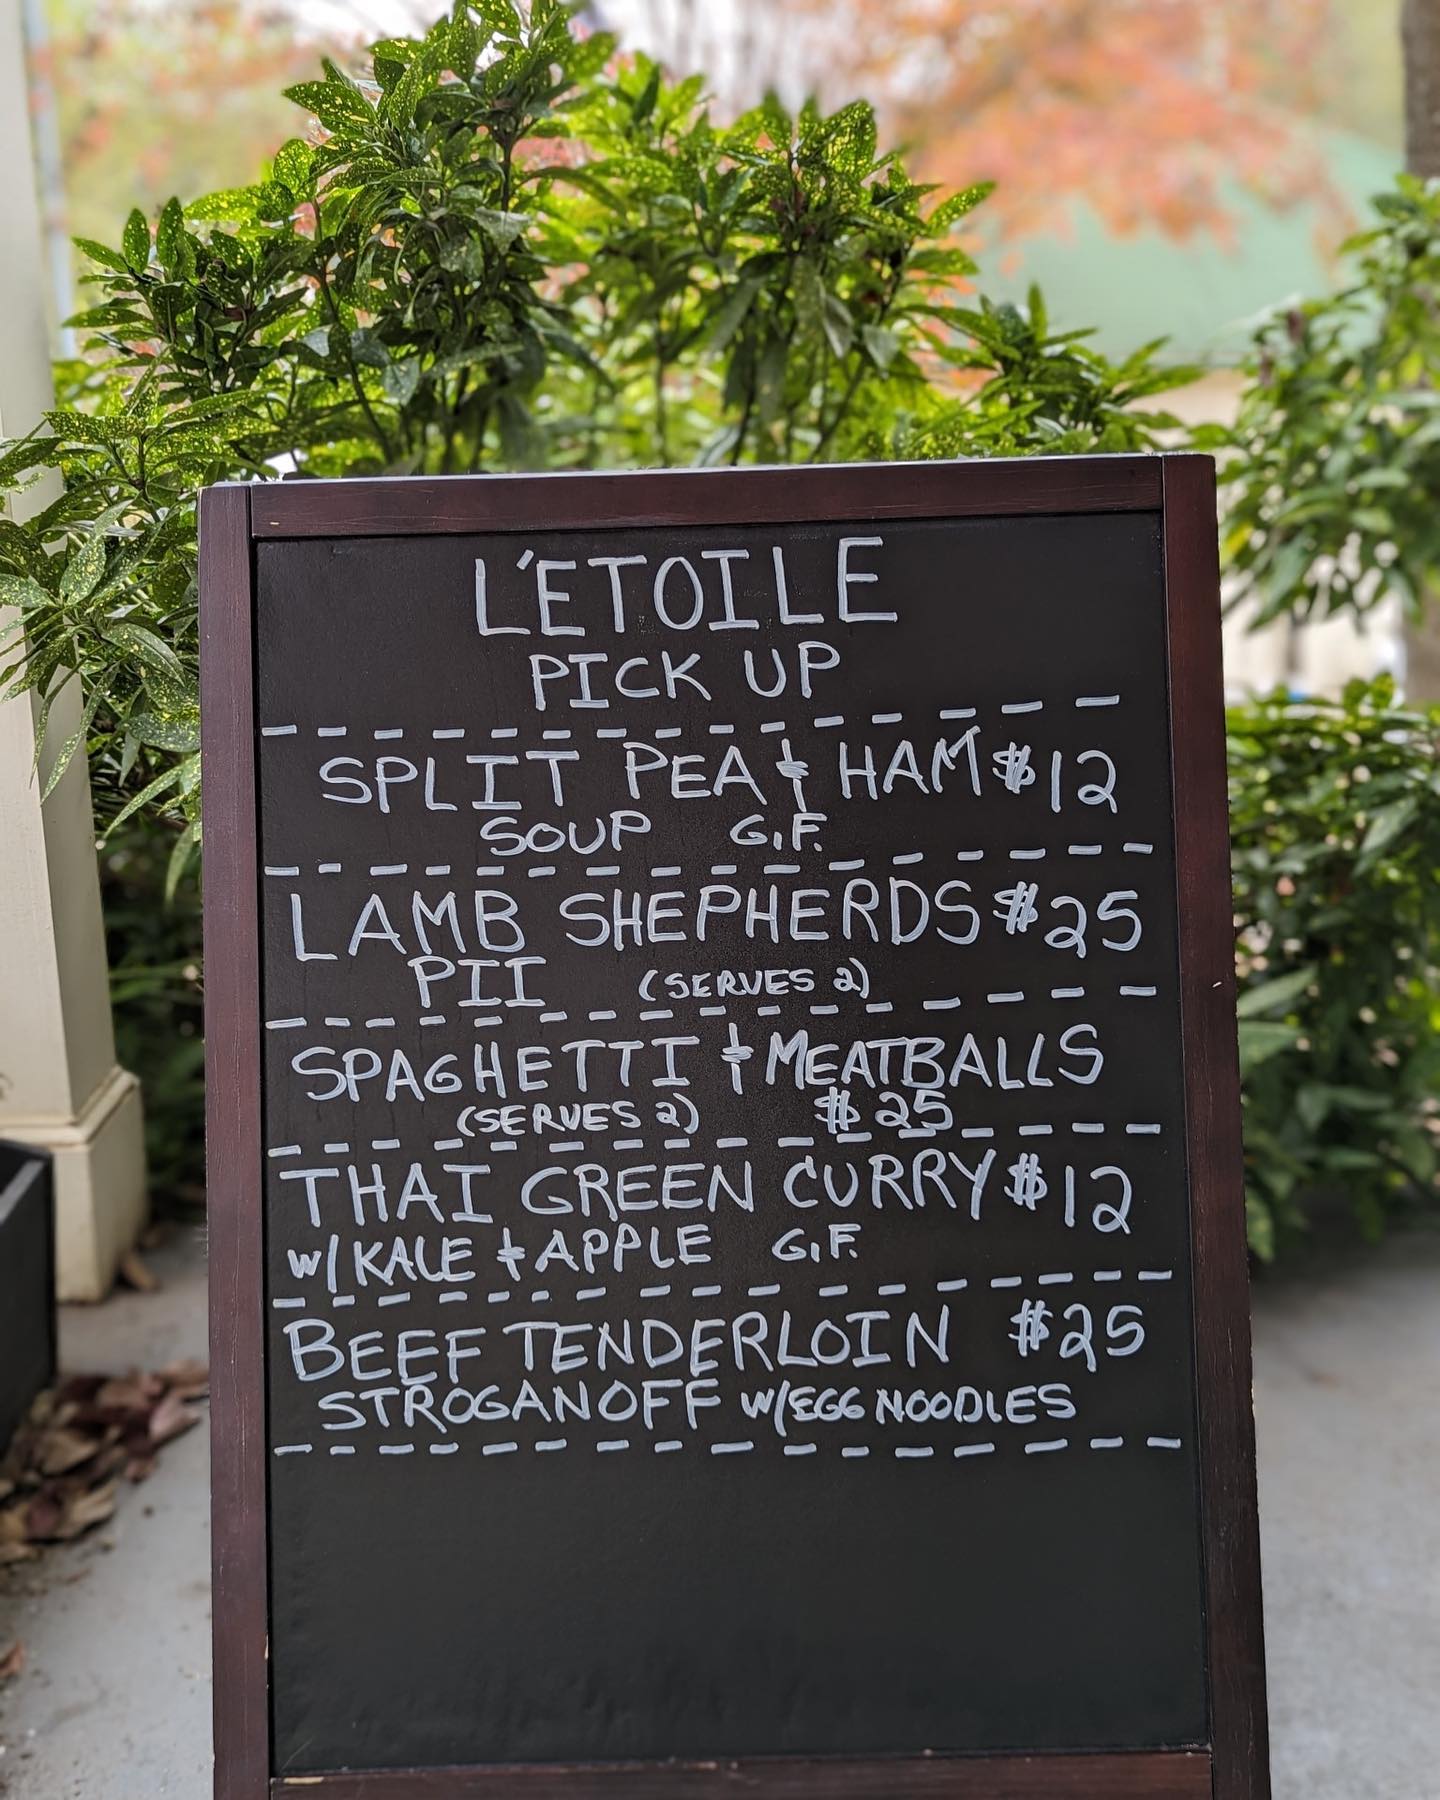 L'ETOILE
PICK UP
SPLIT PEA & HAM $12
SOUP G.F.
LAMB SHEPHERDS $25
PII (SERVES 2)
SPAGHETTI & MEATBALLS
(SERVES 2) $25
THAI GREEN CURRY $12
W/ KALE & APPLE G.F.
BEEF TENDERLOIN $25
STROGANOFF W/ EGG NOODLES